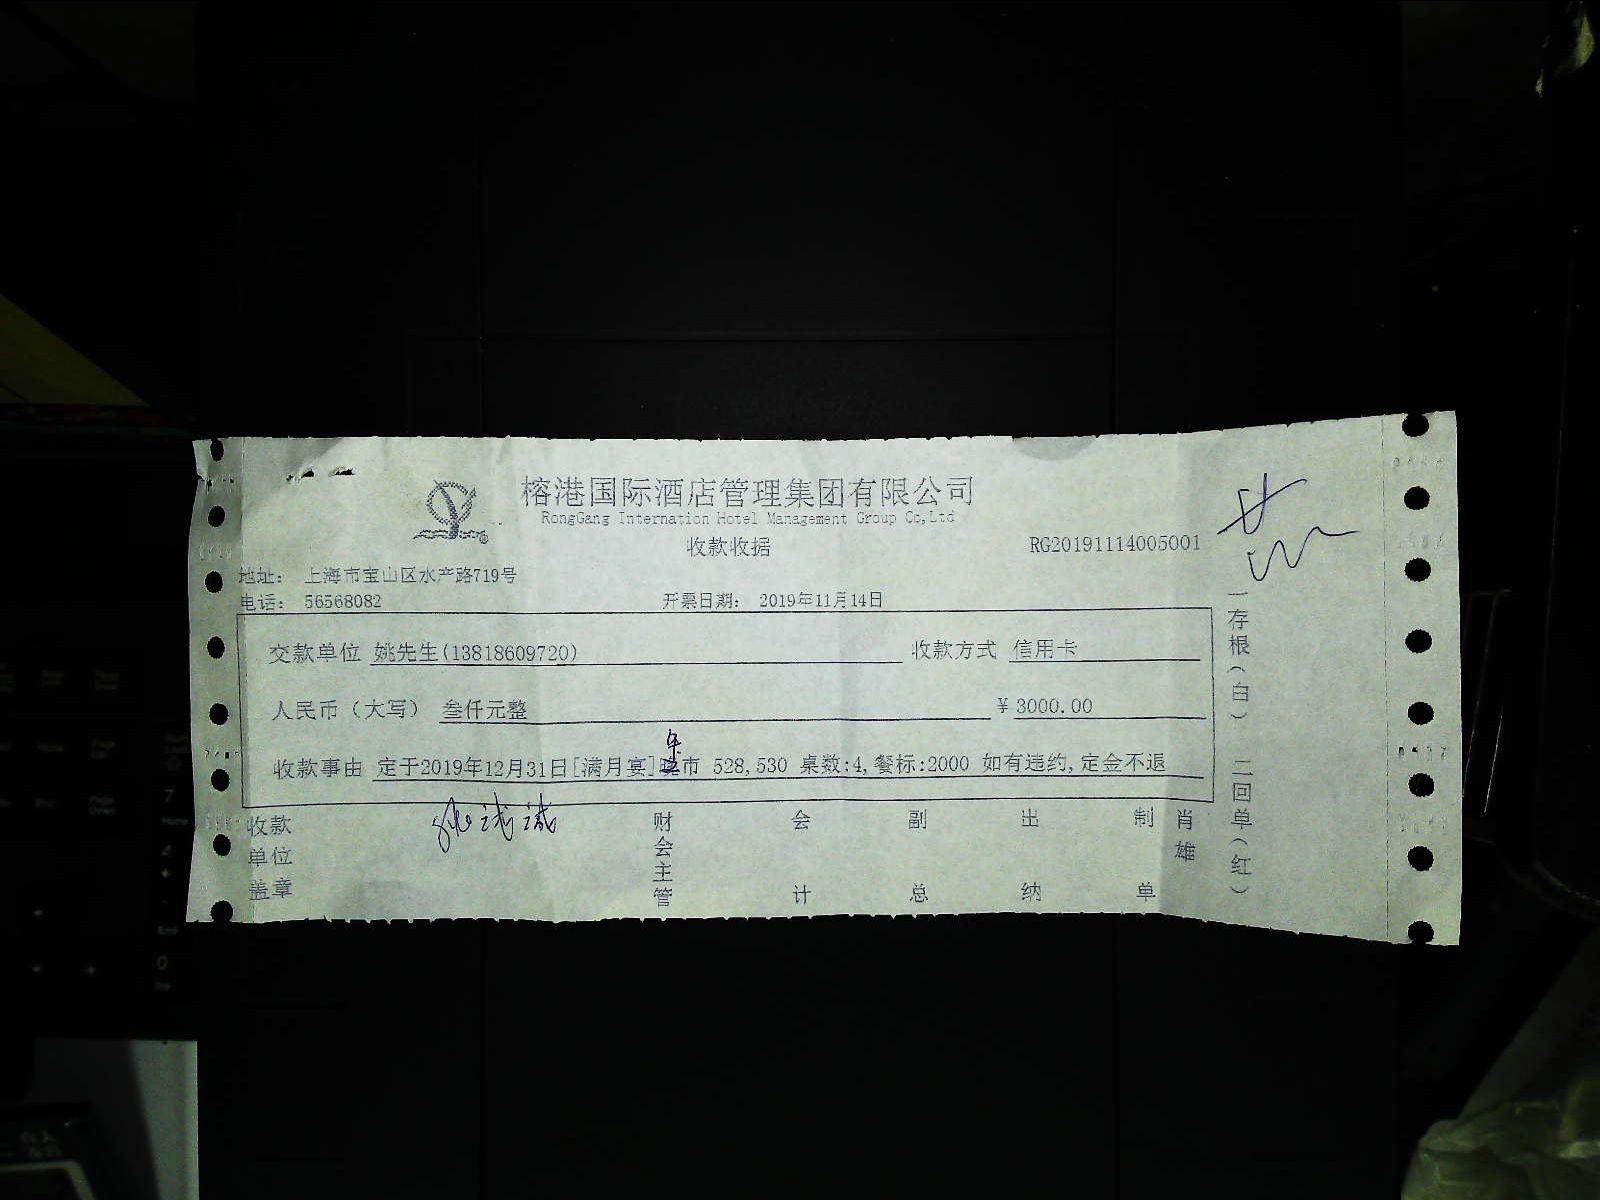 榕港国际酒店管理集团有限公司
RongGang Internation Hotel Management Group Co,Ltd
收款收据
RG20191114005001
地址： 上海市宝山区水产路719号
电话： 56568082
开票日期： 2019年11月14日
交款单位 姚先生(13818609720)
收款方式 信用卡
人民币（大写） 叁仟元整
￥3000.00
收款事由 定于2019年12月31日[满月宴]午市 528,530 桌数:4,餐标:2000 如有违约,定金不退
收款单位盖章
财会主管
会计
副总
出纳
制单
肖雄
一存根(白) 二回单(红)
7
Home
4
End
0